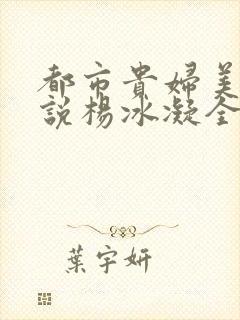 都市貴婦美
說楊冰凝全
葉宇妍